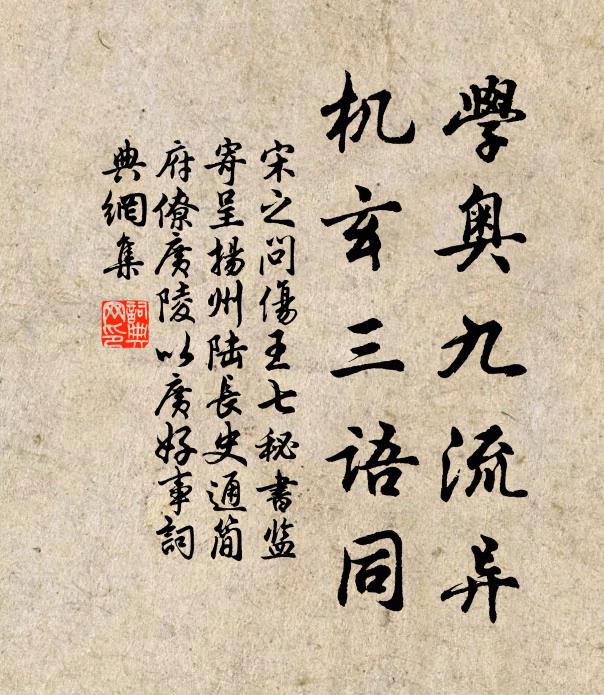 學奥九流异
机玄三语同
宋之问傷王七秘書监
寄呈揚州陆長史通简
府僚廣陵以廣好事詞
典網集
詞典
网印